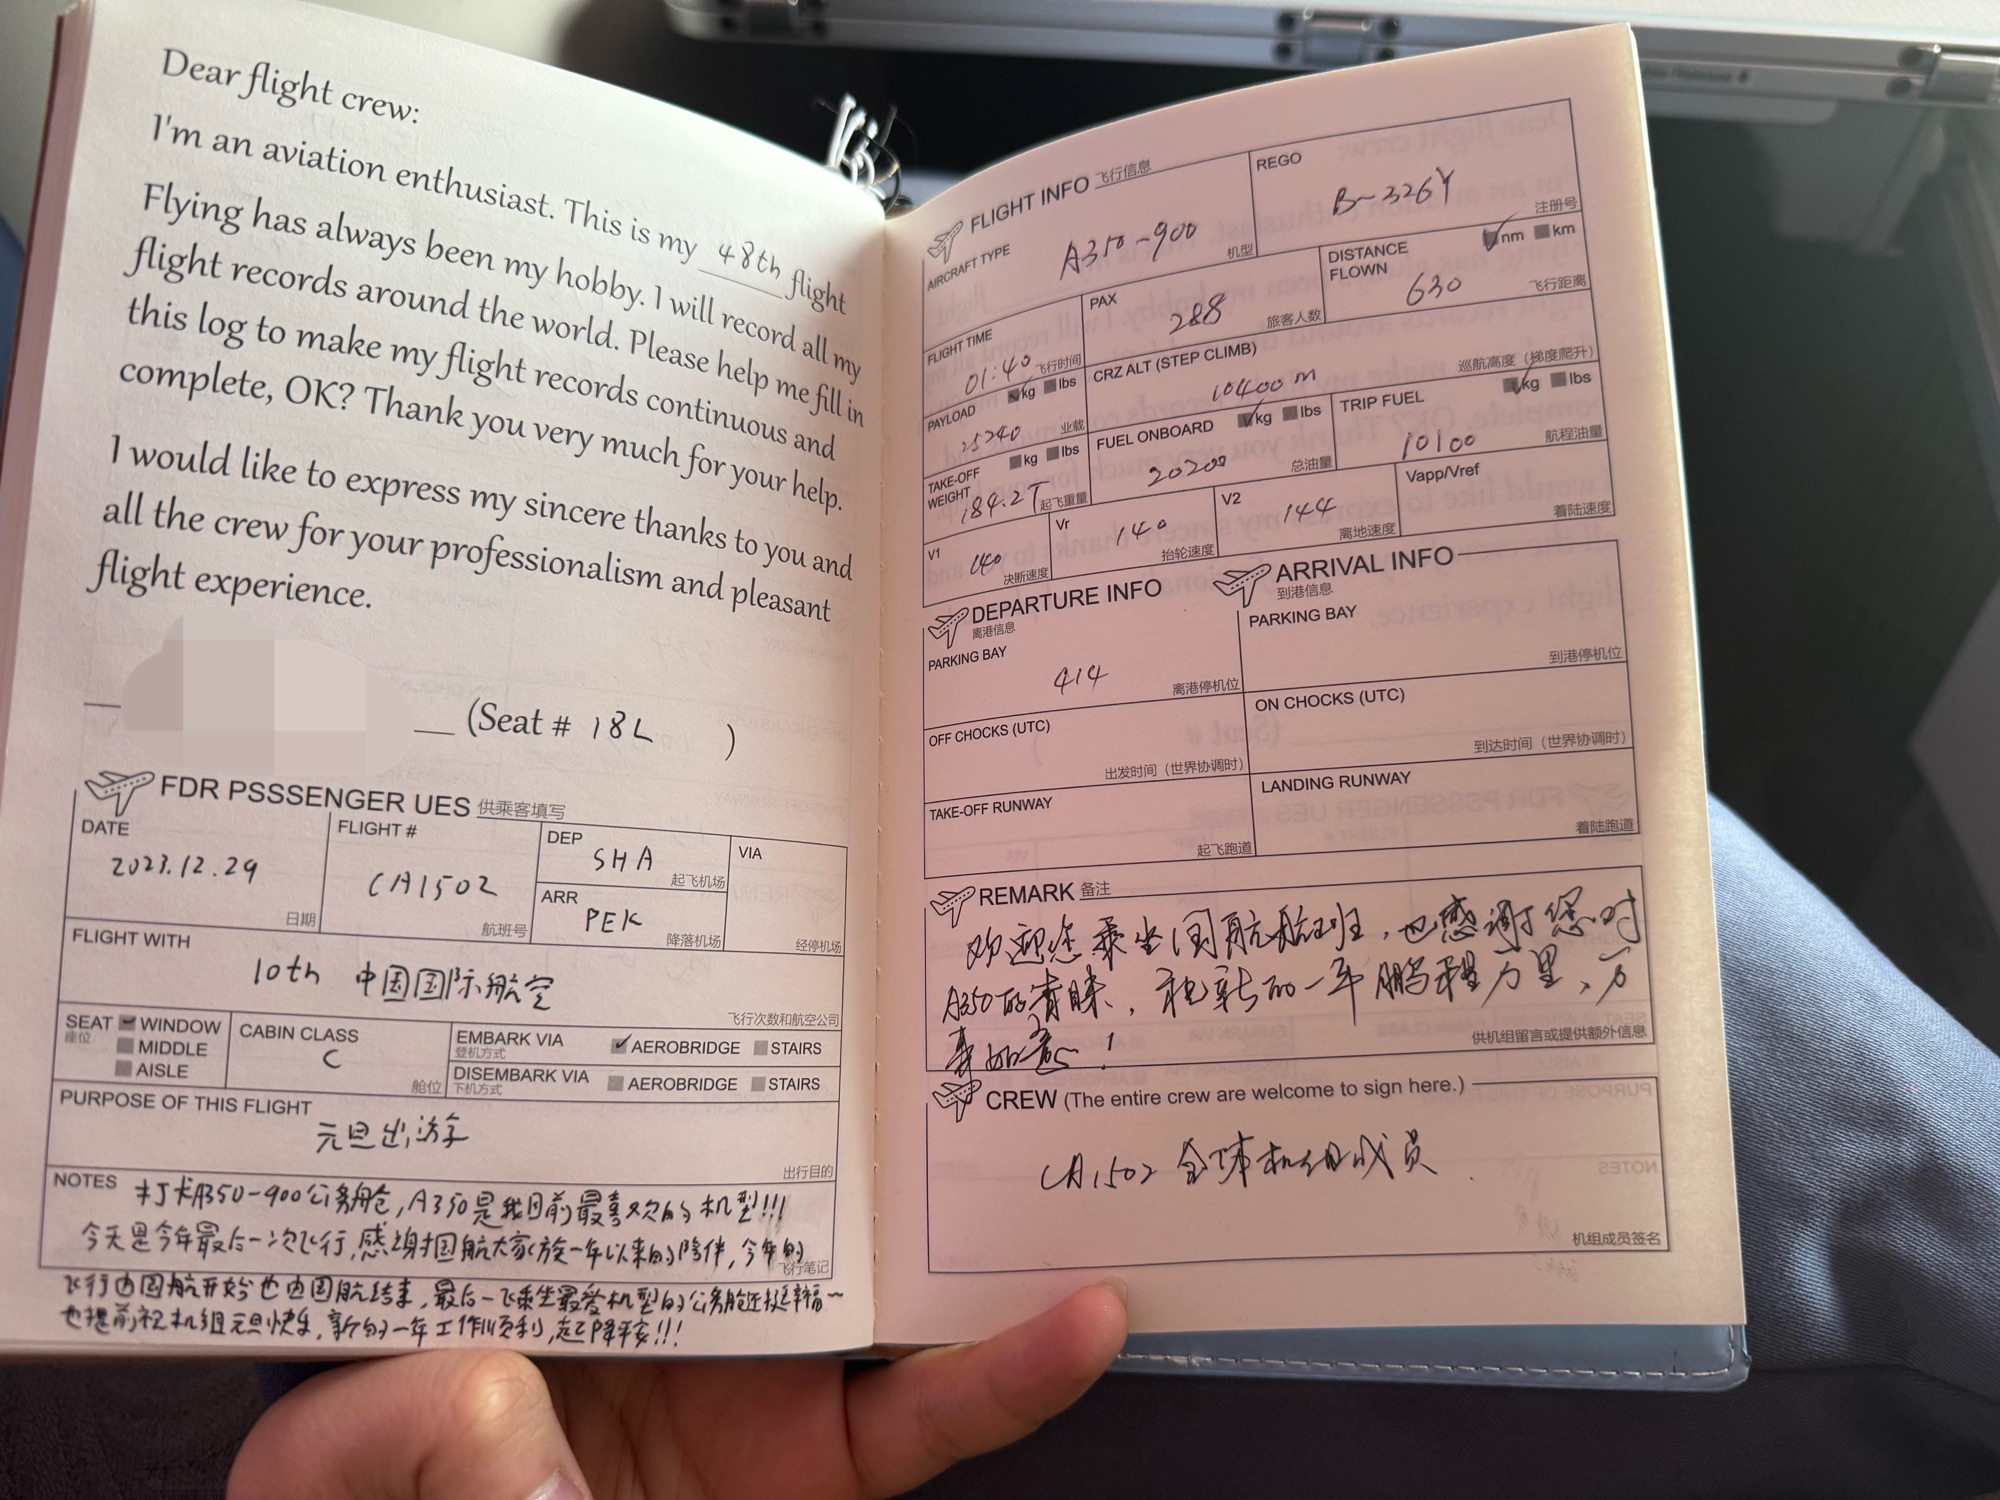 Dear flight crew:
I'm an aviation enthusiast. This is my 48th flight
Flying has always been my hobby. I will record all my
flight records around the world. Please help me fill in
this log to make my flight records continuous and
complete, OK? Thank you very much for your help.
I would like to express my sincere thanks to you and
all the crew for your professionalism and pleasant
flight experience.
(Seat # 18L )
FDR PSSSENGER UES 供乘客填写
DATE 2023.12.29 日期
FLIGHT # CA1502 航班号
DEP SHA 起飞机场
ARR PEK 降落机场
VIA 经停机场
FLIGHT WITH
10th 中国国际航空
飞行次数和航空公司
SEAT 座位 WINDOW
MIDDLE
AISLE
CABIN CLASS C 舱位
EMBARK VIA 登机方式 AEROBRIDGE STAIRS
DISEMBARK VIA 下机方式 AEROBRIDGE STAIRS
PURPOSE OF THIS FLIGHT
元旦出游
出行目的
NOTES 打卡A350-900公务舱,A350是我目前最喜欢的机型!!!
今天是今年最后一次飞行,感谢国航大家族一年以来的陪伴,今年的
飞行笔记
飞行由国航开始也由国航结束,最后一飞乘坐最爱机型的公务舱还挺幸福~
也提前祝机组元旦快乐,新的一年工作顺利,起降平安!!!
FLIGHT INFO 飞行信息
AIRCRAFT TYPE A350-900 机型
REGO B-326Y 注册号
FLIGHT TIME 01:40 飞行时间
PAX 288 旅客人数
DISTANCE FLOWN nm km 630 飞行距离
PAYLOAD kg lbs 25240 业载
CRZ ALT (STEP CLIMB) 10400m 巡航高度（梯度爬升）
TAKE-OFF WEIGHT kg lbs 184.2T 起飞重量
FUEL ONBOARD kg lbs 20200 总油量
TRIP FUEL kg lbs 10100 航程油量
V1 140 决断速度
Vr 140 抬轮速度
V2 144 离地速度
Vapp/Vref 着陆速度
DEPARTURE INFO 离港信息
PARKING BAY 414 离港停机位
OFF CHOCKS (UTC) 出发时间（世界协调时）
TAKE-OFF RUNWAY 起飞跑道
ARRIVAL INFO 到港信息
PARKING BAY 到港停机位
ON CHOCKS (UTC) 到达时间（世界协调时）
LANDING RUNWAY 着陆跑道
REMARK 备注
欢迎您乘坐国航航班,也感谢您对
A350的青睐,祝新的一年鹏程万里、万
事如意!
供机组留言或提供额外信息
CREW (The entire crew are welcome to sign here.)
CA1502 全体机组成员
机组成员签名